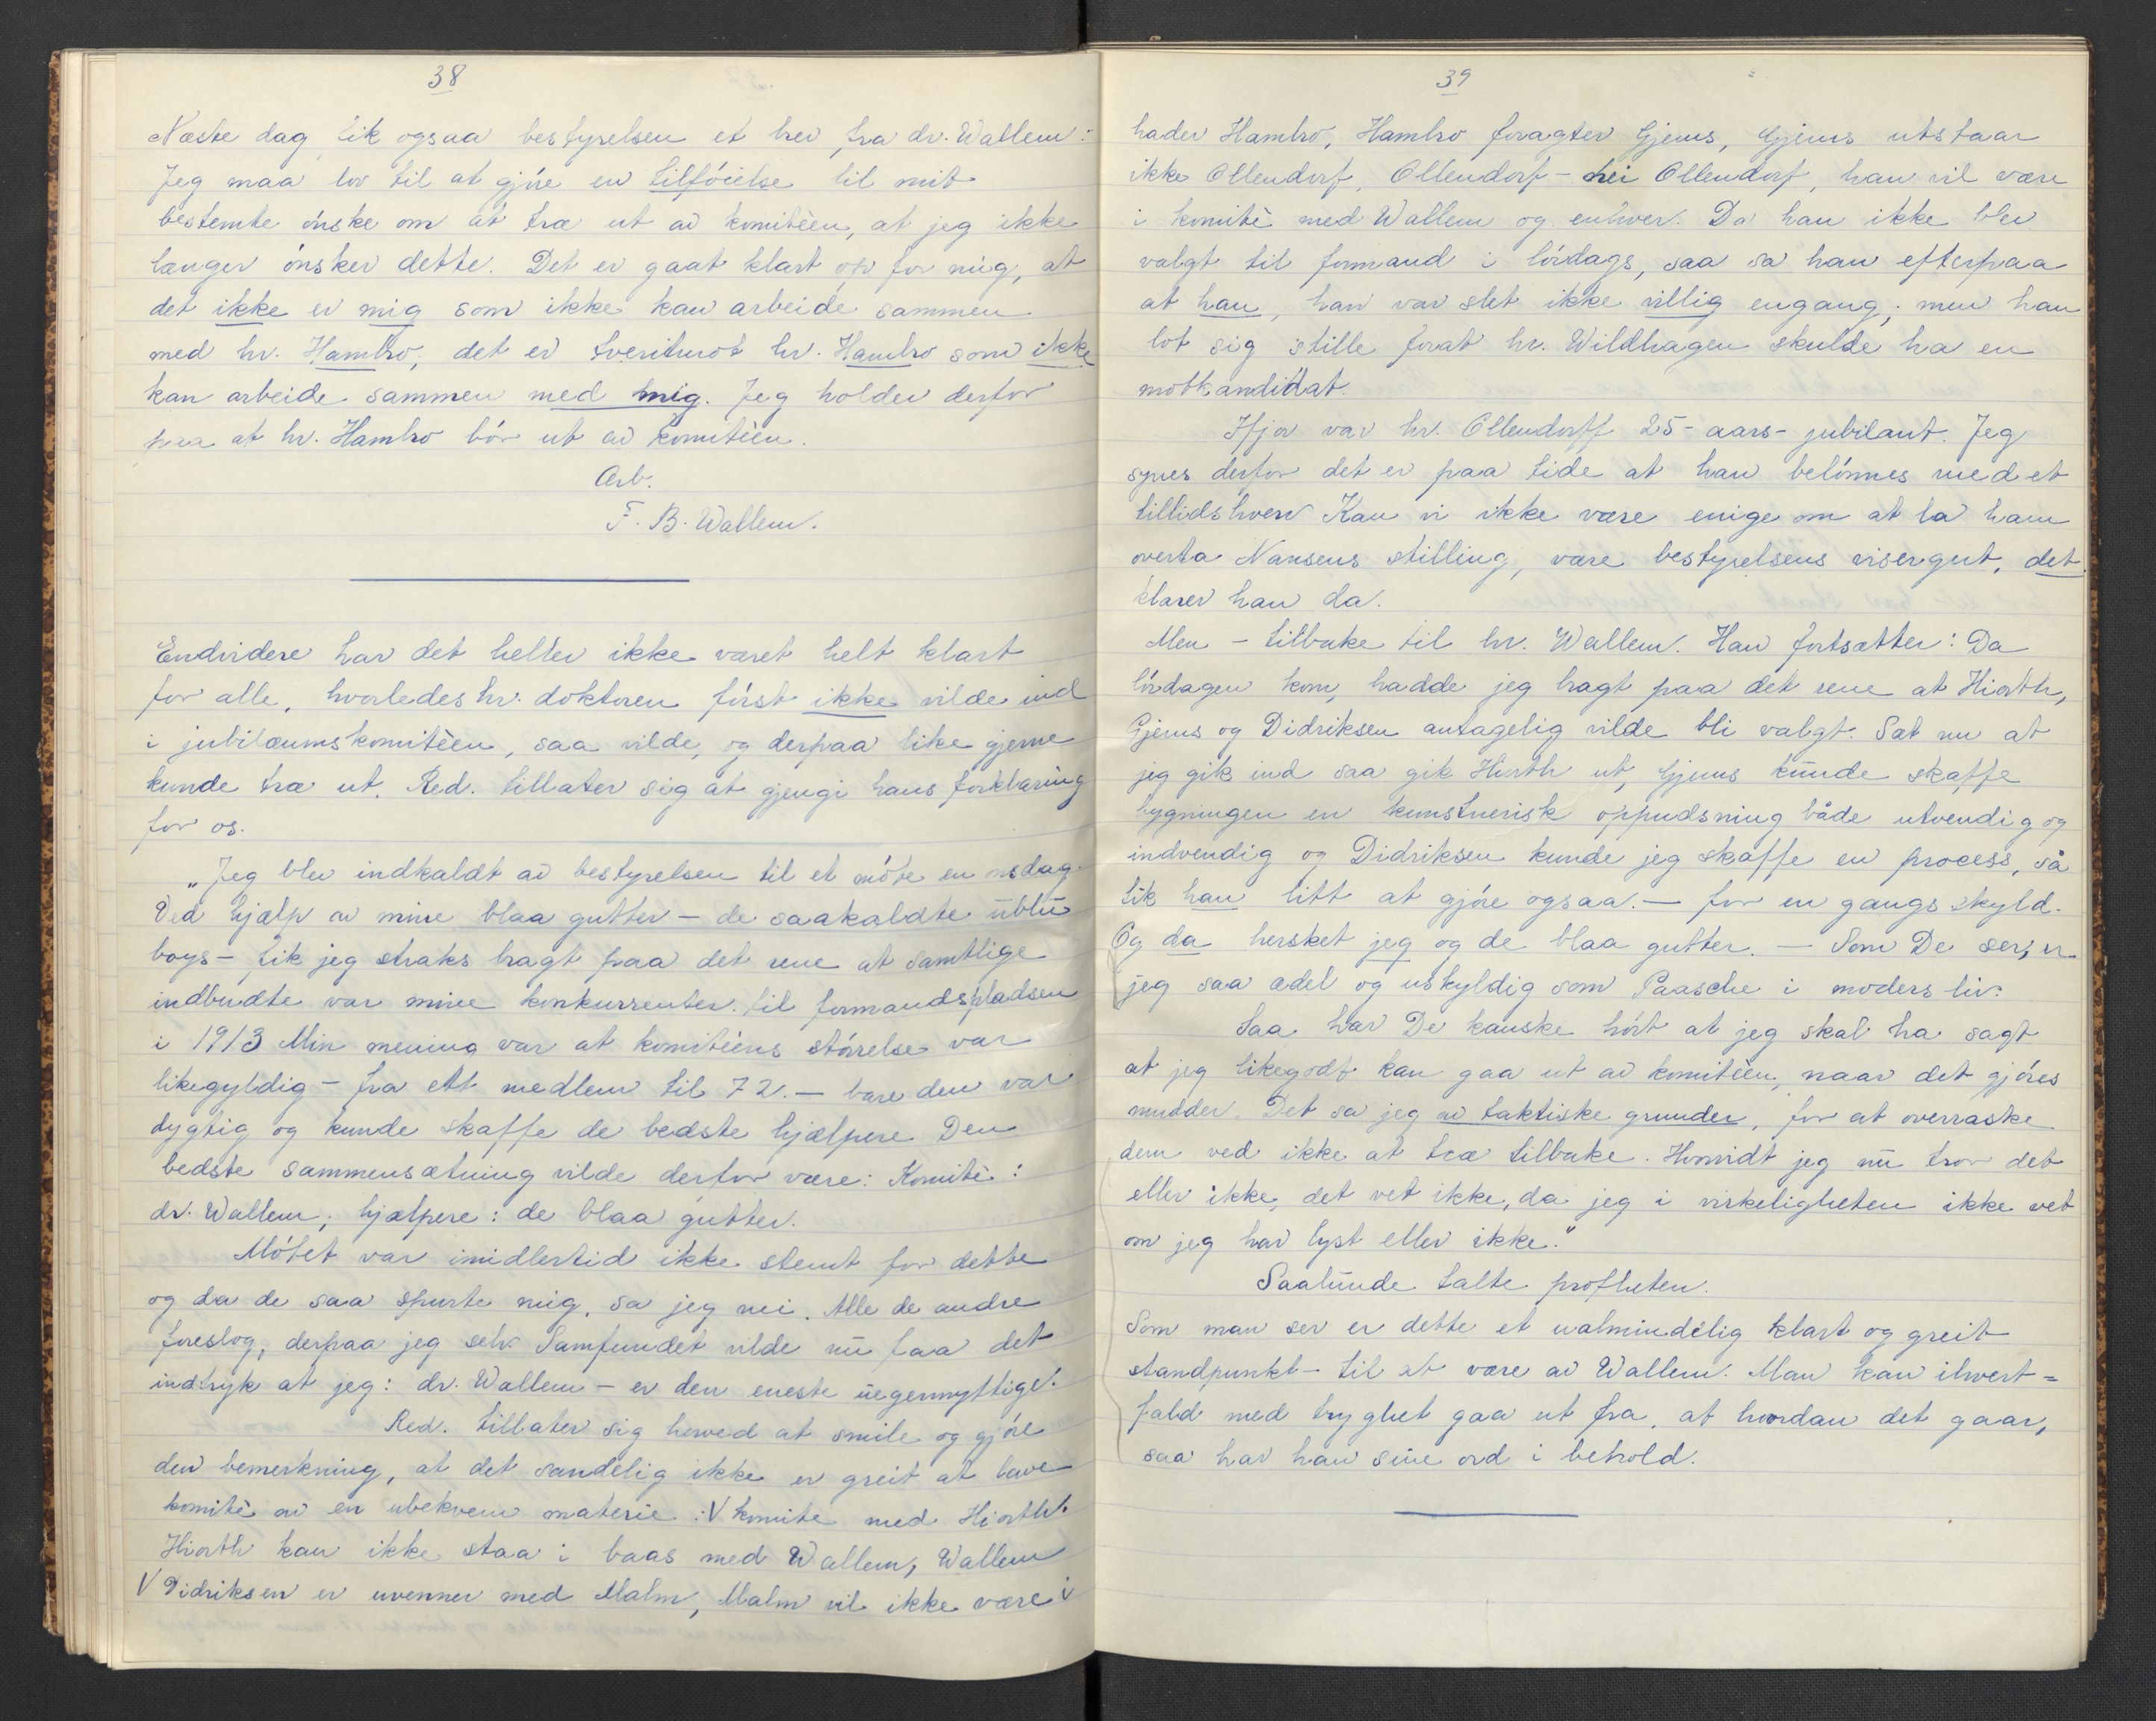 38
Næste dag fik ogsaa bestyrelsen et brev fra dr. Wallem:
Jeg maa lov til at gjóre en tilfóielse til mit
bestemte ónske om at træ ut av komitèen, at jeg ikke
længer ónsker dette. Det er gaat klart op for mig, at
det ikke er mig som ikke kan arbeide sammen
med hr. Hambro, det er tvertimot hr. Hambro som ikke
kan arbeide sammen med mig. Jeg holder derfor
paa at hr. Hambro bór ut av komitèen.
Arb.
F. B. Wallem.
Endvidere har det heller ikke været helt klart
for alle, hvorledes hr. doktoren fórst ikke vilde ind
i jubilæumskomitèen, saa vilde, og derpaa like gjerne
kunde træ ut. Red. tillater sig at gjengi hans forklaring
for os.
„Jeg blev indkaldt av bestyrelsen til et móte en onsdag.
Ved hjælp av mine blaa gutter – de saakaldte ŭblŭ
boys – fik jeg straks bragt paa det rene at samtlige
indbudte var mine konkurrenter til formandspladsen
i 1913 Min mening var at komitèens stórrelse var
likegyldig – fra ett medlem til 72. – bare den var
dygtig og kunde skaffe de bedste hjælpere Den
bedste sammensætning vilde derfor være: Komitè:
dr. Wallem, hjælpere: de blaa gutter.
Mótet var imidlertid ikke stemt for dette
og da de saa spurte mig, sa jeg nei. Alle de andre
foreslog, derpaa jeg selv. Samfundet vilde nŭ faa det
indtryk at jeg: dr. Wallem – er den eneste ŭegennyttige!
Red. tillater sig herved at smile og gjóre
den bemerkning, at det sandelig ikke er greit at lave
komitè av en ubekvem materie: V komite med Hiorth.
Hiorth kan ikke staa i baas med Wallem, Wallem
V Didriksen er uvenner med Malm, Malm vil ikke være i V
39
hader Hambro, Hambro foragter Gjems, Gjems utstaar
ikke Ollendorf, Ollendorf – nei Ollendorf, han vil være
i komitè med Wallem og enhver. Da han ikke blev
valgt til formand i lórdags, saa sa han efterpaa
at han, han var slet ikke villig engang; men han
lot sig stille forat hr. Wildhagen skulde ha en
motkandidat.
Ifjor var hr. Ollendorff 25-aars-jubilant. Jeg
synes derfor det er paa tide at han belónnes med et
tillidshverv Kan vi ikke være enige om at la ham
overta Nansens stilling, være bestyrelsens visergut, det
klarer han da.
Men – tilbake til hr. Wallem. Han fortsætter: Da
lórdagen kom, hadde jeg bragt paa det rene at Hiorth,
Gjems og Didriksen antagelig vilde bli valgt. Sæt nu at
jeg gik ind saa gik Hiorth ut, Gjems kŭnde skaffe
bygningen en kunstnerisk oppudsning både utvendig og
indvendig og Didriksen kunde jeg skaffe en process, så
fik han litt at gjóre ogsaa. – for en gangs skyld.
Og da hersket jeg og de blaa gutter. – Som De ser, er
jeg saa ædel og uskyldig som Paasche i moders liv.
Saa har De kanske hórt at jeg skal ha sagt
at jeg likegodt kan gaa ut av komitèen, naar det gjóres
mudder. Det sa jeg av taktiske grunder, for at overraske
dem ved ikke at træ tilbake. Hvorvidt jeg nŭ tror det
eller ikke, det vet ikke, da jeg i virkeligheten ikke vet
om jeg har lyst eller ikke."
Saalŭnde talte profheten.
Som man ser er dette et ualmindelig klart og greit
standpunkt – til at være av Wallem. Man kan ihvert=
fald med tryghet gaa ut fra, at hvordan det gaar,
saa har han sine ord i behold.